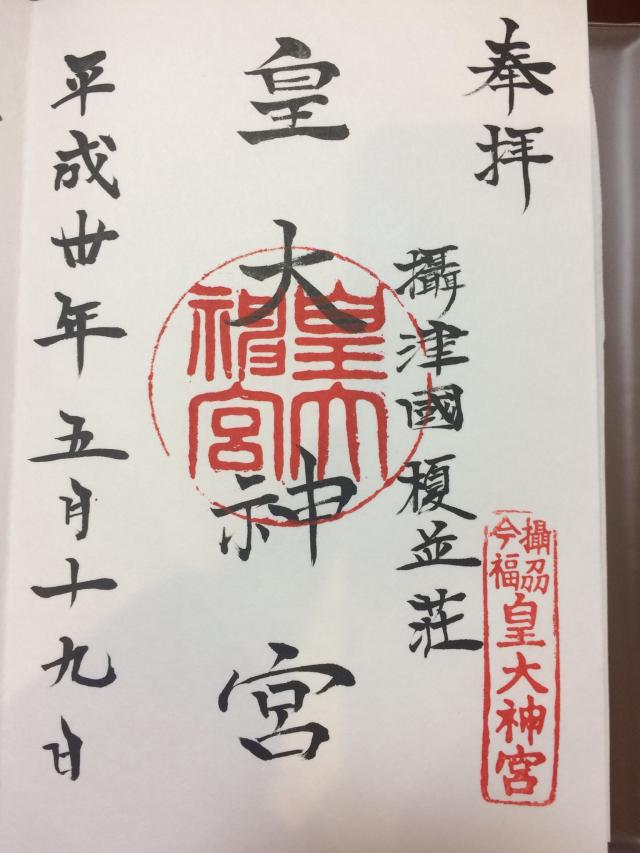 奉拝
攝津國榎並荘
皇大神宮
平成卅年五月十九日
皇大神宮
攝刕今福
皇大神宮